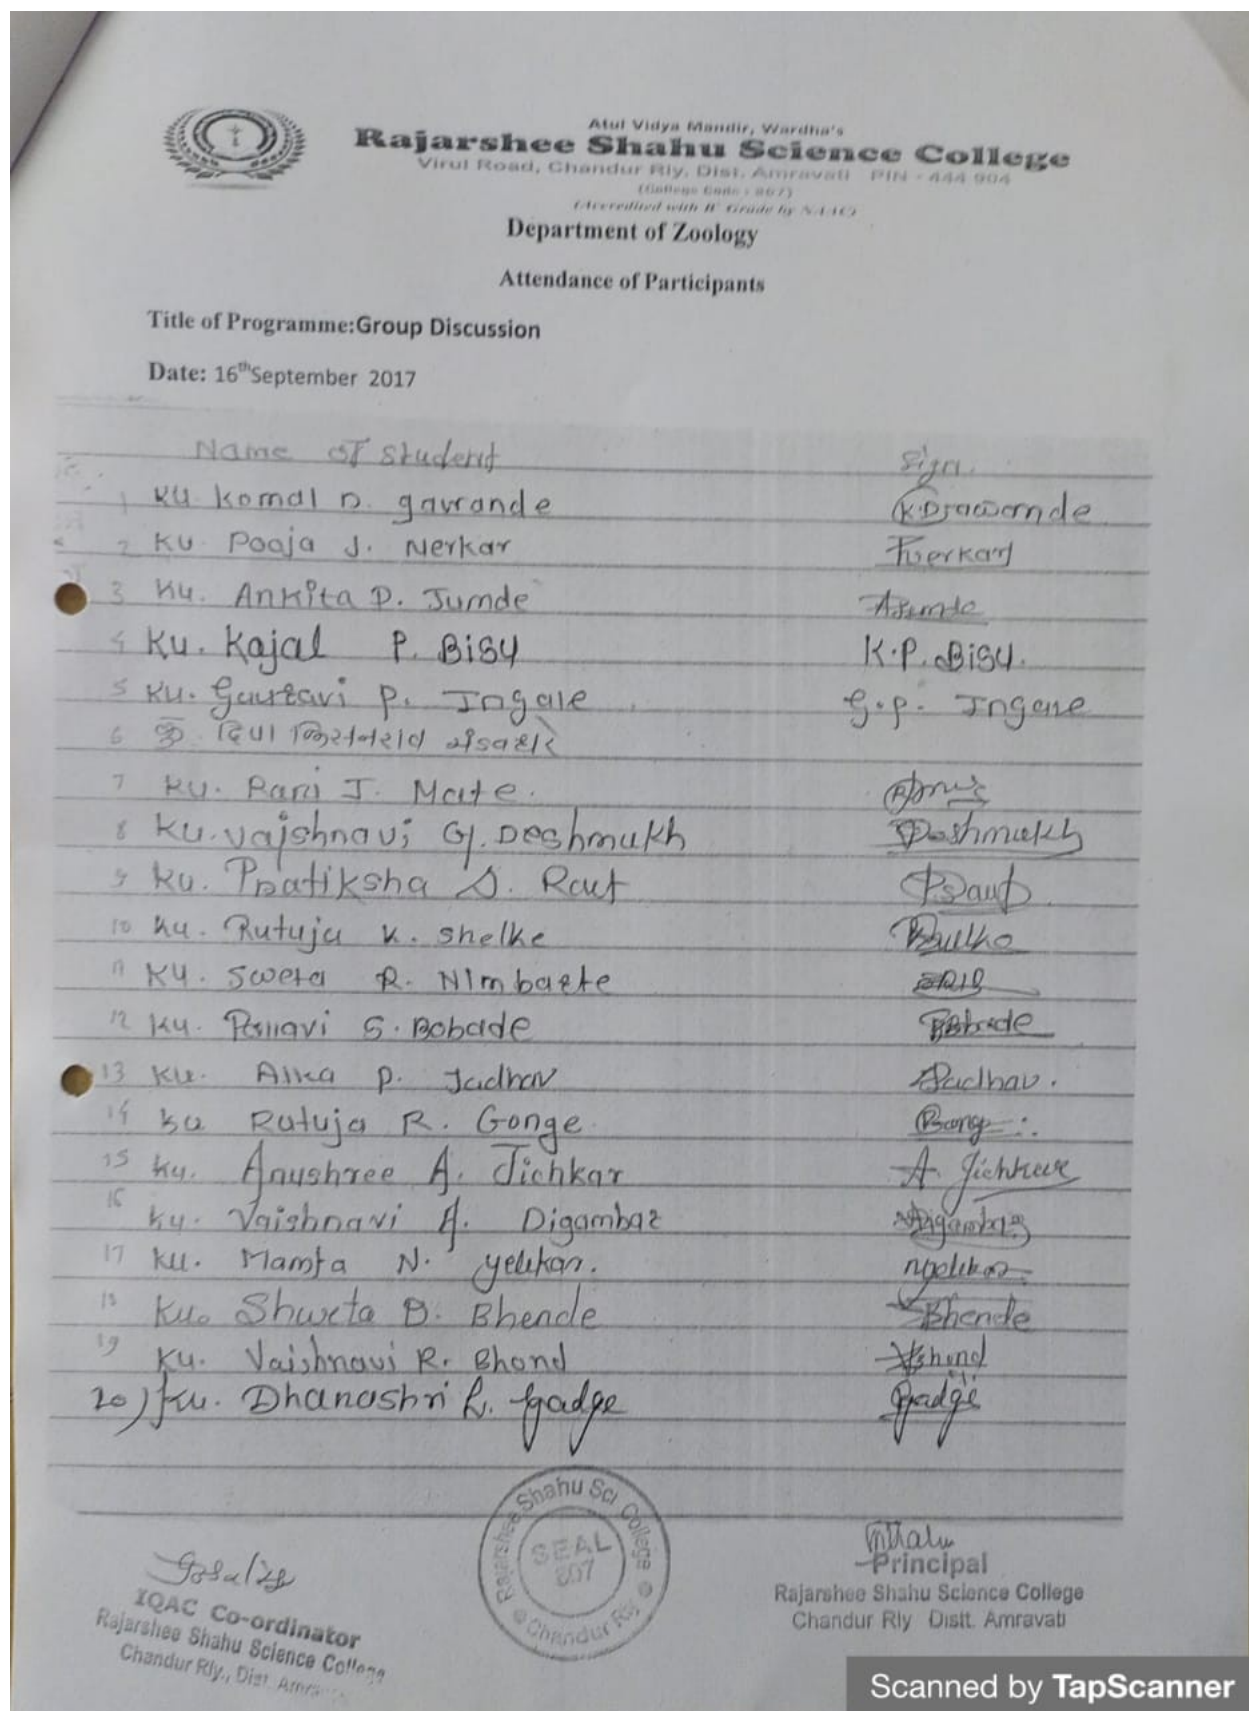 Atul Vidya Mandir, Wardha's
Rajarshee Shahu Science College
Virul Road, Chandur Rly, Dist. Amravati PIN - 444 904
(Accredited with 'B' Grade by NAAC)
Department of Zoology
Attendance of Participants
Title of Programme:Group Discussion
Date: 16th September 2017
Name of student sign
1 Ku. Komal D. gawande
2 Ku. Pooja J. Nerkar
3 Ku. Ankita P. Jumde
4 Ku. Kajal P. Bisu K.P. Bisu.
5 Ku. P. Ingale g.p. Ingale
6 कु. दिपा किसनराव
7 Ku. Rani J. Mate.
8 Ku. Vaishnavi G. Deshmukh Deshmukh
9 Ku. Pratiksha S. Raut
10 Ku. Rutuja K. Shelke
11 Ku. Sweta R.
12 Ku. S. Bobade Bobade
13 Ku. Alka P. Jadhav Jadhav.
14 Ku Rutuja R. Gonge
15 Ku. Anushree A. Jichkar A. Jichkar
16 Ku. Vaishnavi A. Digambar Digambar
17 Ku. Mamta N. yelekar.
18 Ku. Shweta B. Bhende Bhende
19 Ku. Vaishnavi R. Bhond Bhond
20) Ku. Dhanashri R. Gadge Gadge
Rajarshee Shahu Sci. College Chandur Rly
SEAL
807
IQAC Co-ordinator
Rajarshee Shahu Science College
Chandur Rly., Dist.
Principal
Rajarshee Shahu Science College
Chandur Rly Distt. Amravati
Scanned by TapScanner